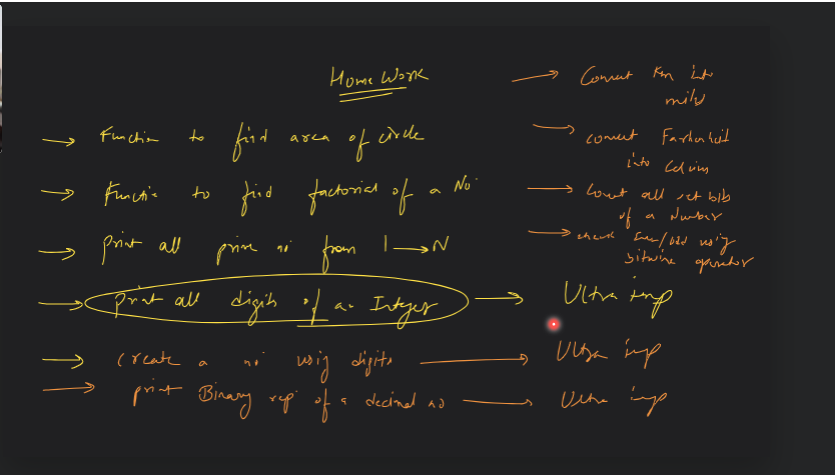 Home Work
→ Function to find area of circle
→ Functio to find factorial of a No
→ print all prime no from 1 → N
→ print all digits of an Integer → Ultra imp
→ create a no using digits → Ultra imp
→ print Binary rep of a decimal no → Ultra imp
→ Convert Km into
miles
→ convert Farhenheit
into Celsius
→ Count all set bits
of a Number
→ check Even/odd using
bitwise operator